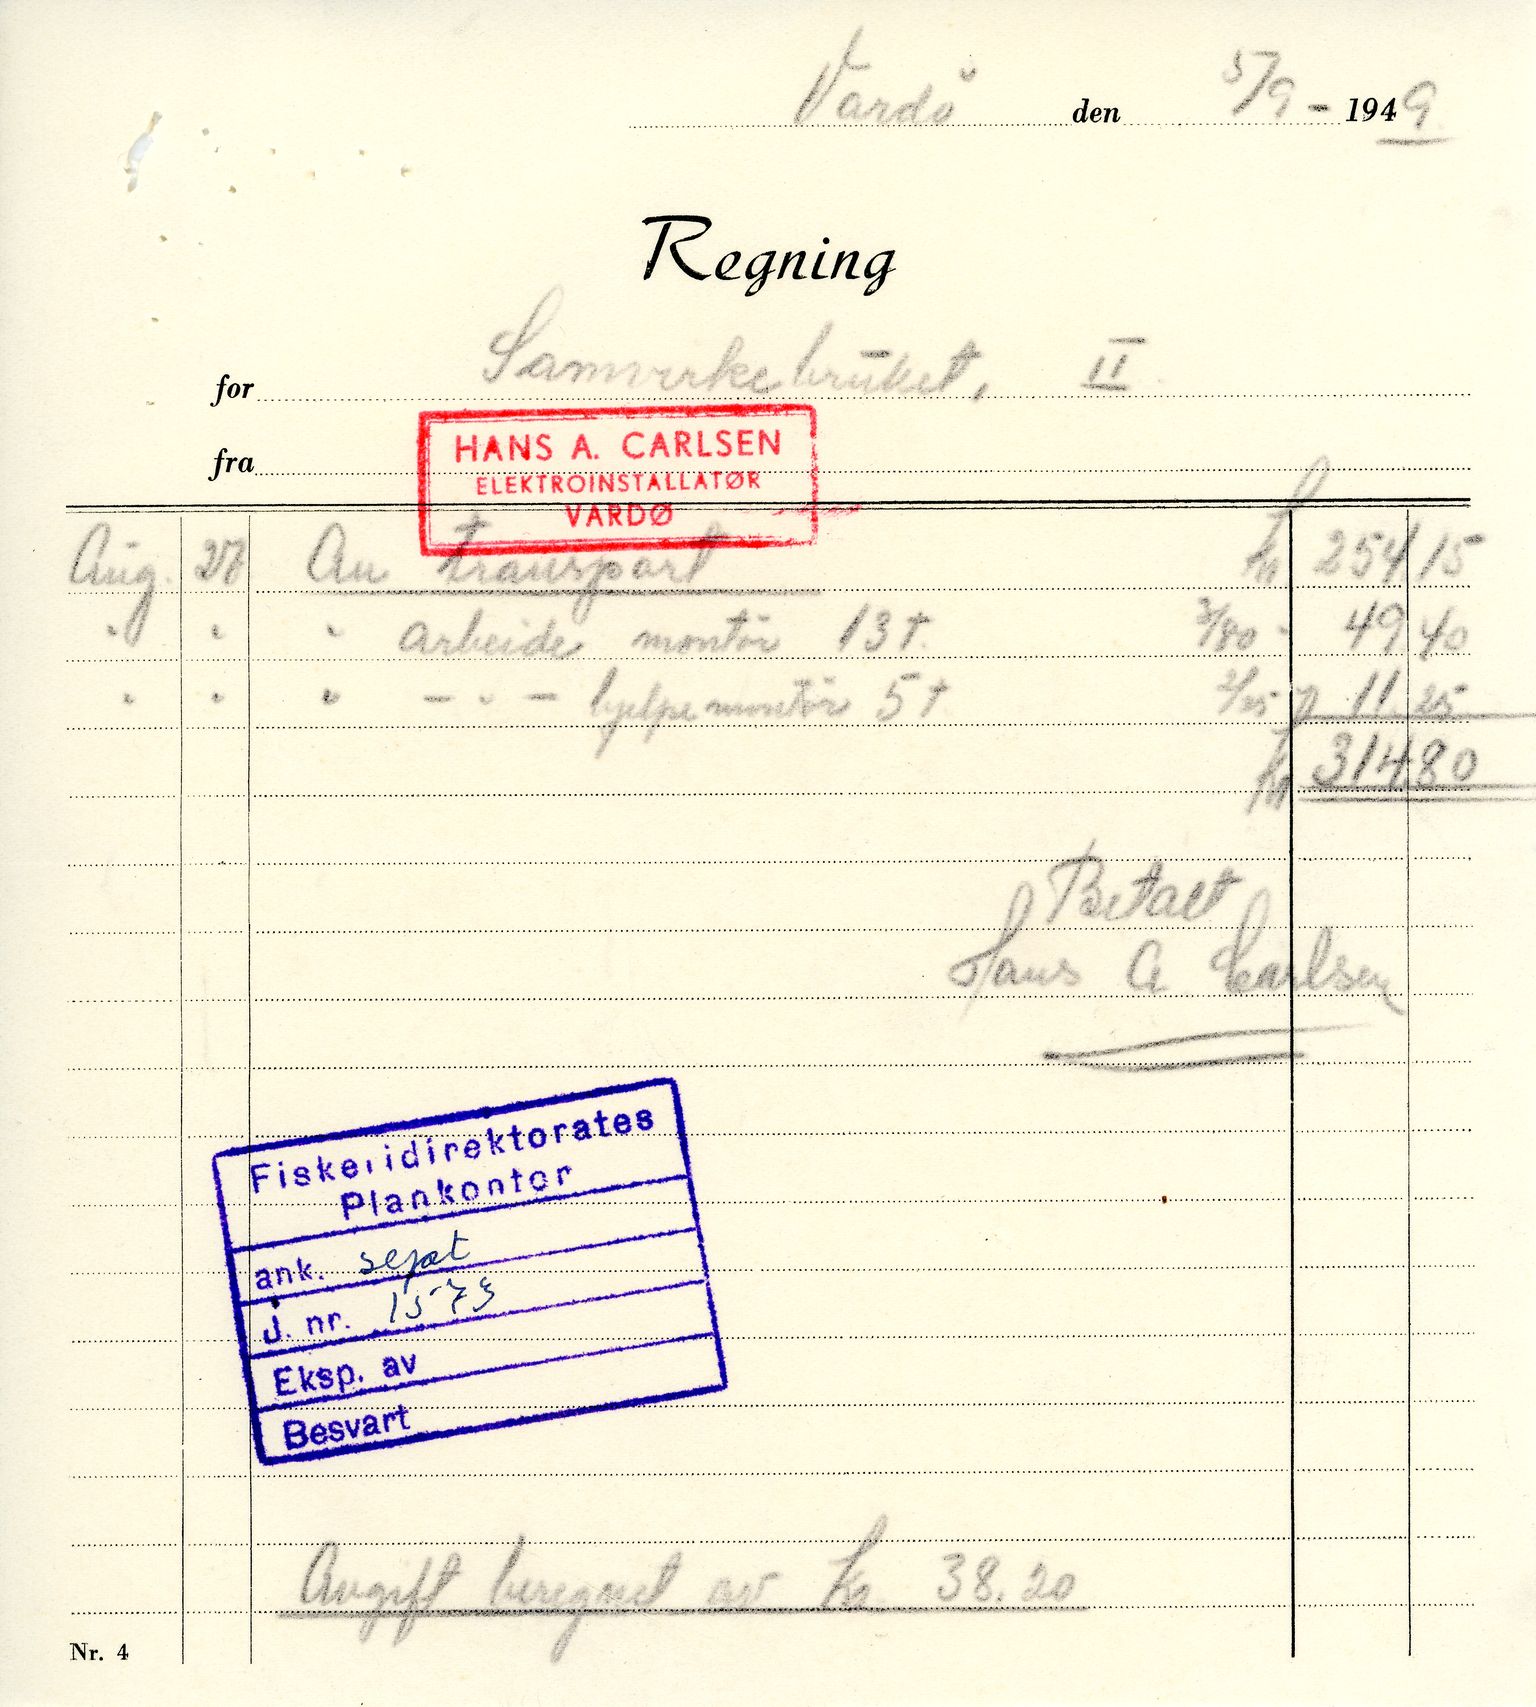 Vardö den 5/9 - 1949
Regning
for Samvirkebruket, II
fra
HANS A. CARLSEN
ELEKTROINSTALLATØR
VARDØ
Aug. 27 An transport kr 254 15
" " " arbeide montör 13 t. 3/80 - 49 40
" " " - " - hjelpemontör 5 t 2/25 " 11.25
kr 314 80
Betalt
Hans A Carlsen
Fiskeridirektorates
Plankontor
ank. sept
J. nr. 1573
Eksp. av
Besvart
Avgift beregnet av kr 38.20
Nr. 4